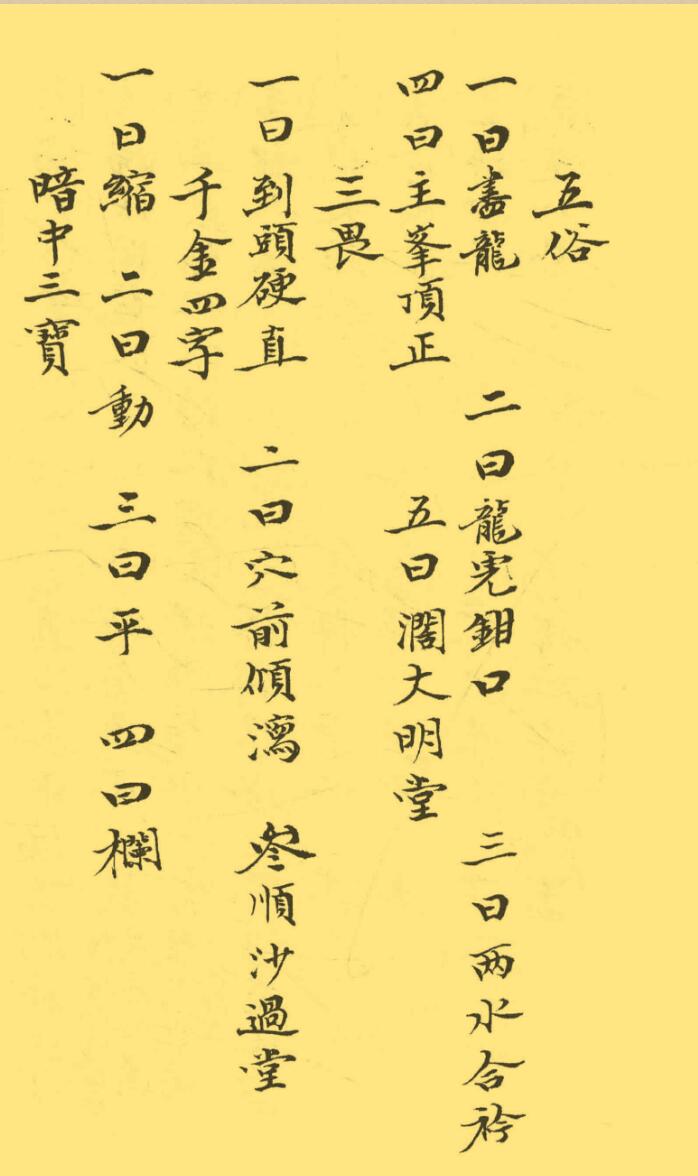 五俗
一曰盡龍 二曰龍虎鉗口 三曰两水合衿
四曰主峯頂正 五曰濶大明堂
三畏
一曰到頭硬直 二曰穴前傾瀉 叁順沙過堂
千金四字
一曰縮 二曰動 三曰平 四曰欄
暗中三寶